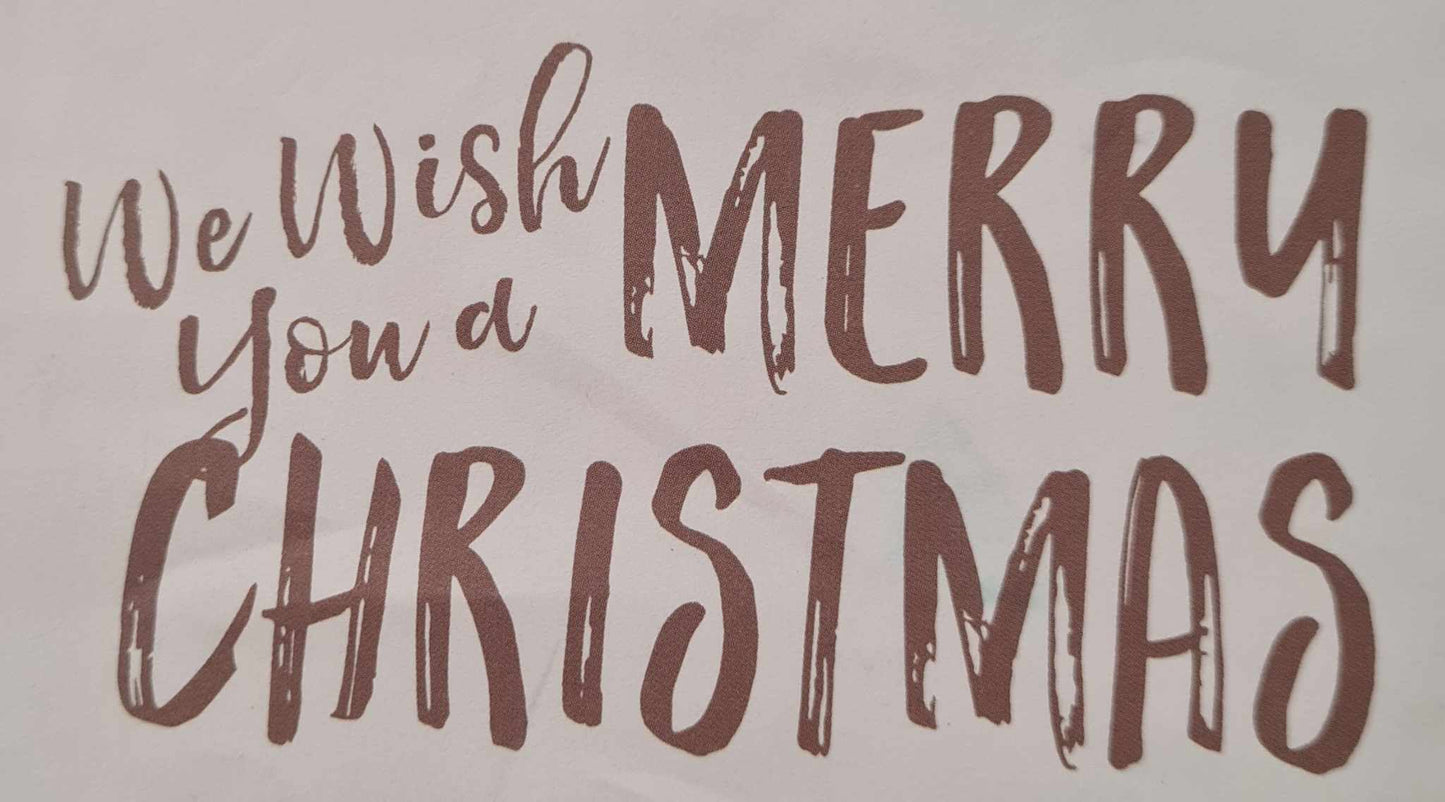 We Wish
You a MERRY
CHRISTMAS